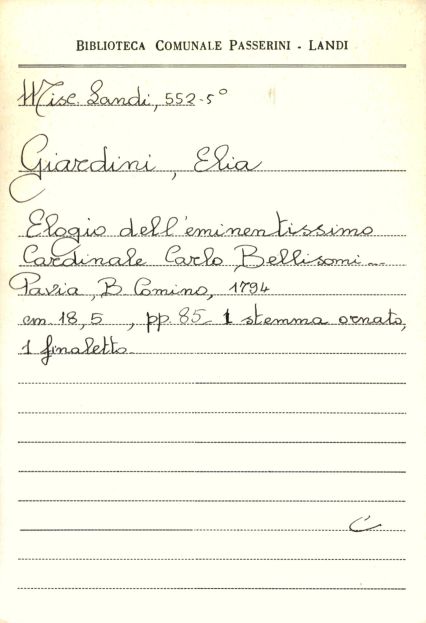 BIBLIOTECA COMUNALE PASSERINI - LANDI
Misc. Landi, 552-5°
Giardini, Elia
Elogio dell'eminentissimo
Cardinale Carlo Bellisomi...
Pavia, B. Comino, 1794
cm. 18,5 , pp. 85. 1 stemma ornato,
1 finaletto.
C